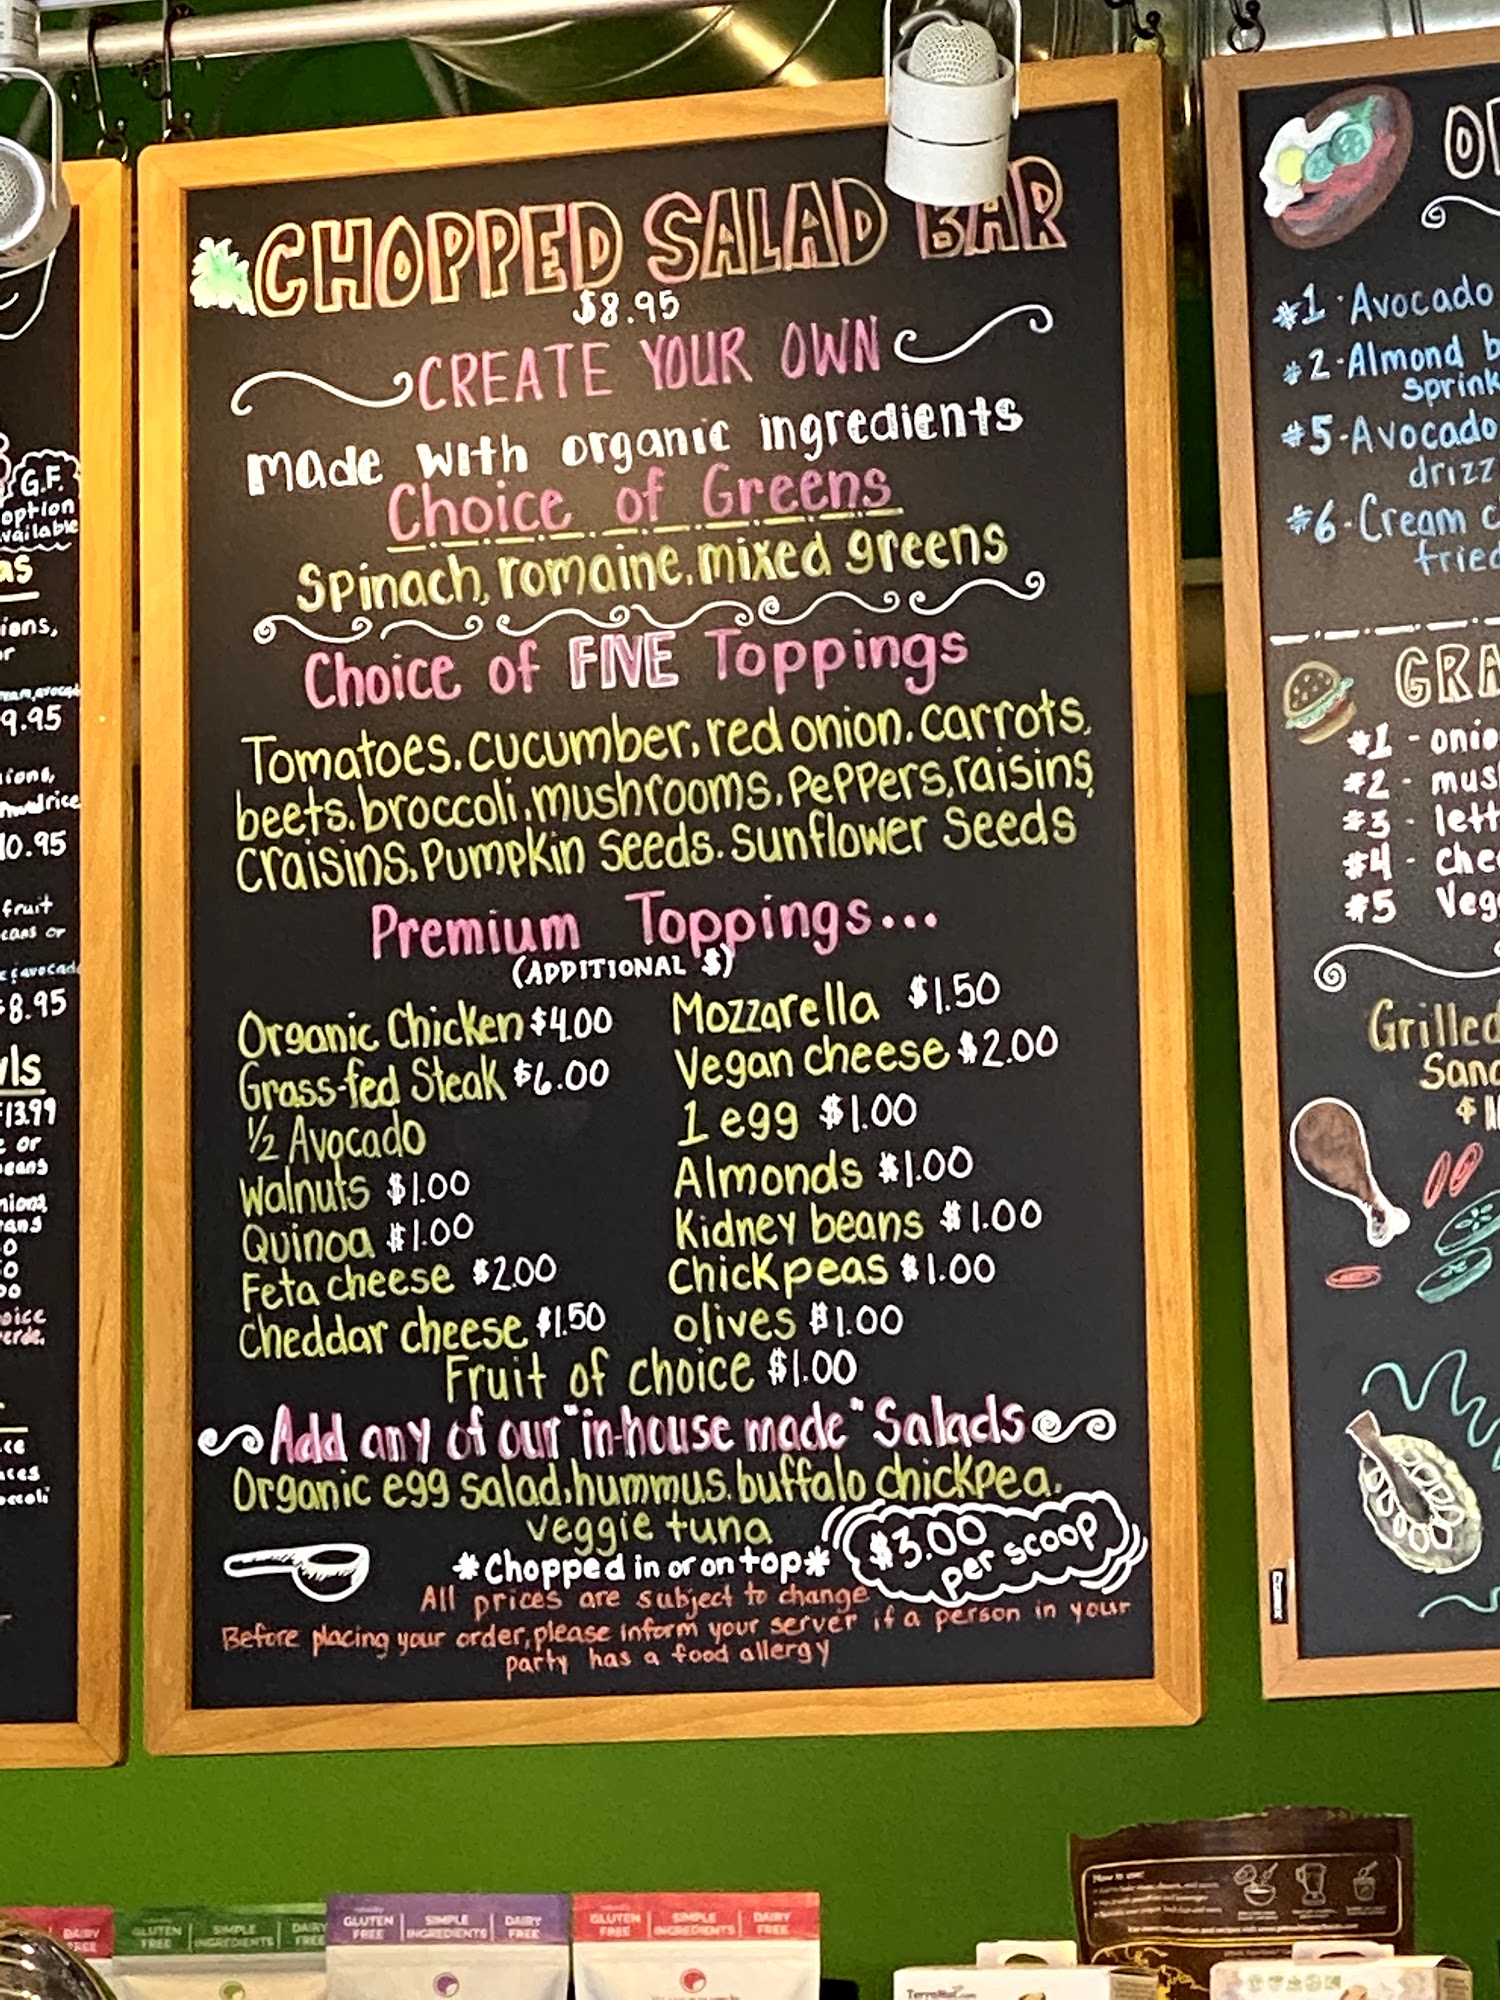 CHOPPED SALAD BAR
$8.95
CREATE YOUR OWN
made with organic ingredients
Choice of Greens
Spinach, romaine, mixed greens
Choice of FIVE Toppings
Tomatoes, cucumber, red onion, carrots,
beets, broccoli, mushrooms, peppers, raisins,
craisins, pumpkin seeds, sunflower seeds
Premium Toppings...
(ADDITIONAL $)
Organic Chicken $4.00
Grass-fed Steak $6.00
1/2 Avocado
Walnuts $1.00
Quinoa $1.00
Feta cheese $2.00
Cheddar cheese $1.50
Mozzarella $1.50
Vegan cheese $2.00
1 egg $1.00
Almonds $1.00
Kidney beans $1.00
Chickpeas $1.00
olives $1.00
Fruit of choice $1.00
Add any of our "in-house made" Salads
Organic egg salad, hummus, buffalo chickpea,
veggie tuna
*Chopped in or on top*
$3.00
per scoop
All prices are subject to change
Before placing your order, please inform your server if a person in your
party has a food allergy
G.F.
option
9.95
10.95
fruit
or
8.95
13.99
or
#1 · Avocado
#2 - Almond
#5 - Avocado
#6 - Cream
fried
#1 - 
#2 - 
#3 - 
#4 - 
#5
Grilled
GLUTEN FREE | SIMPLE INGREDIENTS | DAIRY FREE
GLUTEN FREE | SIMPLE INGREDIENTS | DAIRY FREE
GLUTEN FREE | SIMPLE INGREDIENTS | DAIRY FREE
How to use: